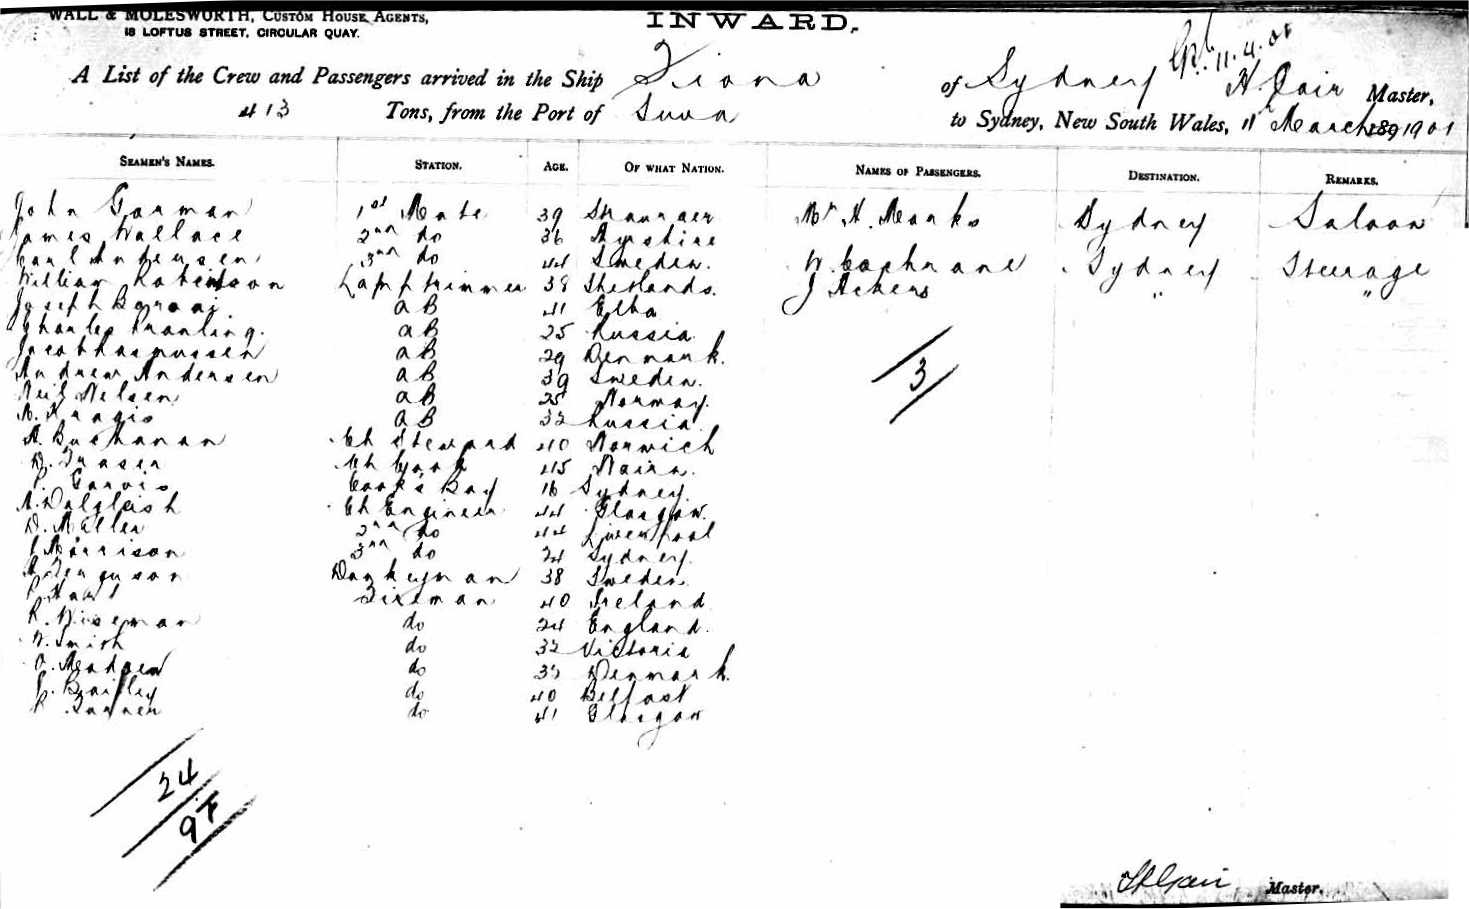 WALL & MOLESWORTH, CUSTOM HOUSE AGENTS,
18 LOFTUS STREET, CIRCULAR QUAY.
INWARD.
11.4.01
A List of the Crew and Passengers arrived in the Ship Fiona of Sydney H. Gair Master,
413 Tons, from the Port of Suva to Sydney, New South Wales, 11th March 1891901
SEAMEN'S NAMES. STATION. AGE. OF WHAT NATION. NAMES OF PASSENGERS. DESTINATION. REMARKS.
John Gorman 1st Mate 39 Stranraer Mr H. Marks Sydney Saloon
James Wallace 2nd do 36 Ayrshire
Carl Andersen 3rd do 44 Sweden. W. Cochrane Sydney Steerage
William Robertson Lamptrimmer 38 Shetlands. J Ackers " "
Joseph AB 41 Elba
Charles AB 25 Russia
Jacob Rasmussen AB 29 Denmark.
Andrew Andersen AB 39 Sweden.
Neil Nelsen AB 25 Norway.
AB 32 Russia
3
A. Buchanan Ch Steward 40 Norwich
D. Fraser Ch Cook 45 Nairn.
P. Garvis Cook's Boy 16 Sydney.
A. Dalgleish Ch Engineer 44 Glasgow.
D. Miller 2nd do 44 Liverpool
Morrison 3rd do 24 Sydney.
Ferguson Donkeyman 38 Sweden
Fireman 40 Ireland
R. Wiseman do 24 England.
W. Smith do 32 Victoria
O. Madsen do 33 Denmark.
J. Bailey do 40 Belfast
R. Turner do 41 Glasgow
24
9F
H Gair Master.